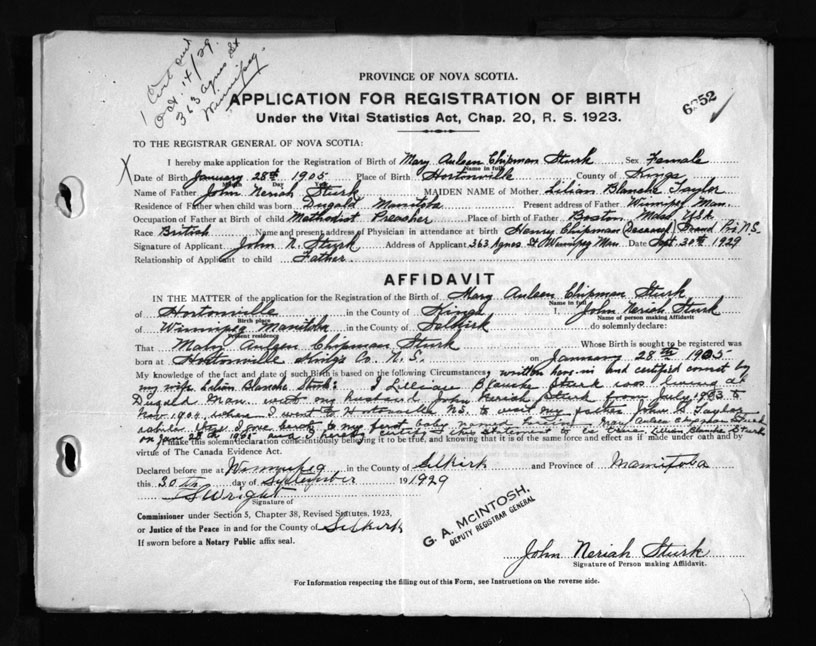 1 Cert sent
Oct. 14/29
363 Agnes St
Winnipeg.
PROVINCE OF NOVA SCOTIA.
APPLICATION FOR REGISTRATION OF BIRTH
6252
Under the Vital Statistics Act, Chap. 20, R. S. 1923.
TO THE REGISTRAR GENERAL OF NOVA SCOTIA:
I hereby make application for the Registration of Birth of Mary Auleen Chipman Sturk Sex Female
Name in full
X Date of Birth January 28th 1905 Place of Birth Hortonville County of Kings
Day
Name of Father John Neriah Sturk MAIDEN NAME of Mother Lilian Blanche Taylor
Residence of Father when child was born Dugald Manitoba Present address of Father Winnipeg Man.
Occupation of Father at Birth of child Methodist Preacher Place of birth of Father Boston, Mass USA
Race British Name and present address of Physician in attendance at birth Henry Chipman (Deceased) Grand Pré N.S.
Signature of Applicant John N. Sturk Address of Applicant 363 Agnes St Winnipeg Man Date Sept. 30th 1929
Relationship of Applicant to child Father.
AFFIDAVIT
IN THE MATTER of the application for the Registration of the Birth of Mary Auleen Chipman Sturk
Name in full
of Hortonville in the County of Kings I, John Neriah Sturk
Birth place Name of person making Affidavit
of Winnipeg Manitoba in the County of Selkirk do solemnly declare:
Present residence
That Mary Auleen Chipman Sturk Whose Birth is sought to be registered was
born at Hortonville King's Co. N. S. on January 28th 1905
My knowledge of the fact and date of such Birth is based on the following Circumstances, written here-in and certified correct by
my wife Lilian Blanche Sturk: I Lillian Blanche Sturk was living at
Dugald Man. with my husband John Neriah Sturk from July 1903 to
Nov. 1904, when I went to Hortonville NS. to visit my father John S. Taylor
I gave birth to my first baby
on Jan 28th 1905 and I hereby Lilian Blanche Sturk
I make this solemn declaration conscientiously believing it to be true, and knowing that it is of the same force and effect as if made under oath and by
virtue of The Canada Evidence Act.
Declared before me at Winnipeg in the County of Selkirk and Province of Manitoba
this 30th day of September 191929
Wright
Signature of
Commissioner under Section 5, Chapter 38, Revised Statutes, 1923,
or Justice of the Peace in and for the County of Selkirk
If sworn before a Notary Public affix seal.
G. A. McINTOSH,
DEPUTY REGISTRAR GENERAL
John Neriah Sturk
Signature of Person making Affidavit.
For Information respecting the filling out of this Form, see Instructions on the reverse side.